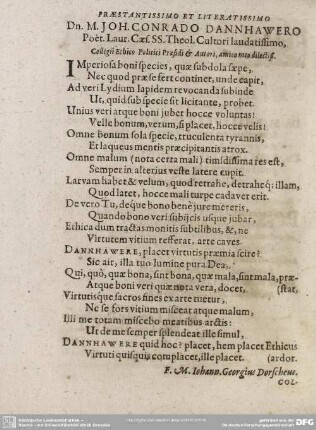 PRÆSTANTISSIMO ET LITERATISSIMO
Dn. M. JOH. CONRADO DANNHAWERO
Poët. Laur. Cæs. SS. Theol. Cultori laudatissimo,
Collegii Ethico Politici Præsidi & Autori, amico meo dilectiss.
IMperiosa boni species, quæ subdola sæpe,
Nec quod præ se fert continet, unde capit,
Ad veri Lydium lapidem revocanda subinde
Ut, quid sub specie sit licitante, probet.
Unius veri atque boni jubet hocce voluntas:
Velle bonum, verum, si placet, hocce velis!
Omne bonum sola specie, truculenta tyrannis,
Et laqueus mentis præcipitantis atrox.
Omne malum (nota certa mali) timidissima res est,
Semper in alterius veste latere cupit.
Larvam habet & velum, quod retrahe, detraheq; illam,
Quod latet, hocce mali turpe cadaver erit.
De vero Tu, deque bono benè jure mereris,
Quando bono veri subijcis usque jubar,
Ethica dum tractas monitis subtilibus, &, ne
Virtutem vitium refferat, arte caves.
DANNHAWERE, placet virtutis præmia scire?
Sic ait, illa tuo lumine pura Dea,
Qui, quò, quæ bona, sint bona, quæ mala, sint mala, præ-
Atque boni veri quæ nota vera, docet, (stat,
Virtutisque sacros fines ex arte tuetur,
Ne se fors vitium misceat atque malum,
Illi me totam miscebo meatibus arctis:
Ut de me semper splendeat ille simul,
DANNHAWERE quid hoc? placet, hem placet Ethicus
Virtuti quisquis complacet, ille placet. (ardor.
F. M. Iohann. Georgius Dorscheus.
COL-